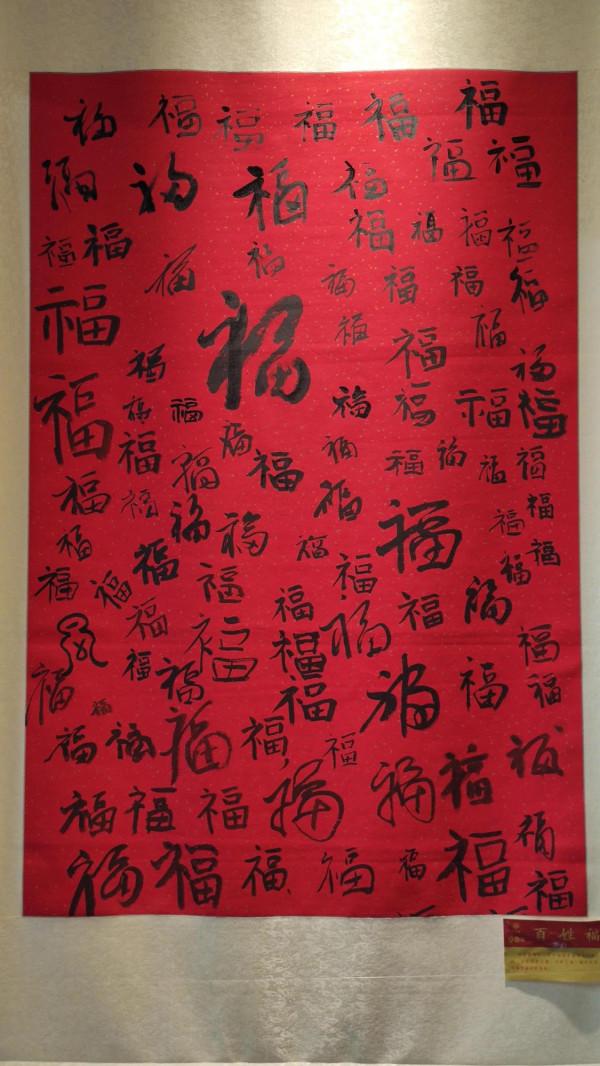 福福福福福福
福福福福福福
福福福福福福福
福福福福福
福福福福福
福福
福福福福福福福
福福福福福福福福福
福福福福福福
福福福福福福
福福福福福
福福福福福
福福福福
福福福福福福福
福福福福福福
福福福福福福
福福福福福福福福
百姓福